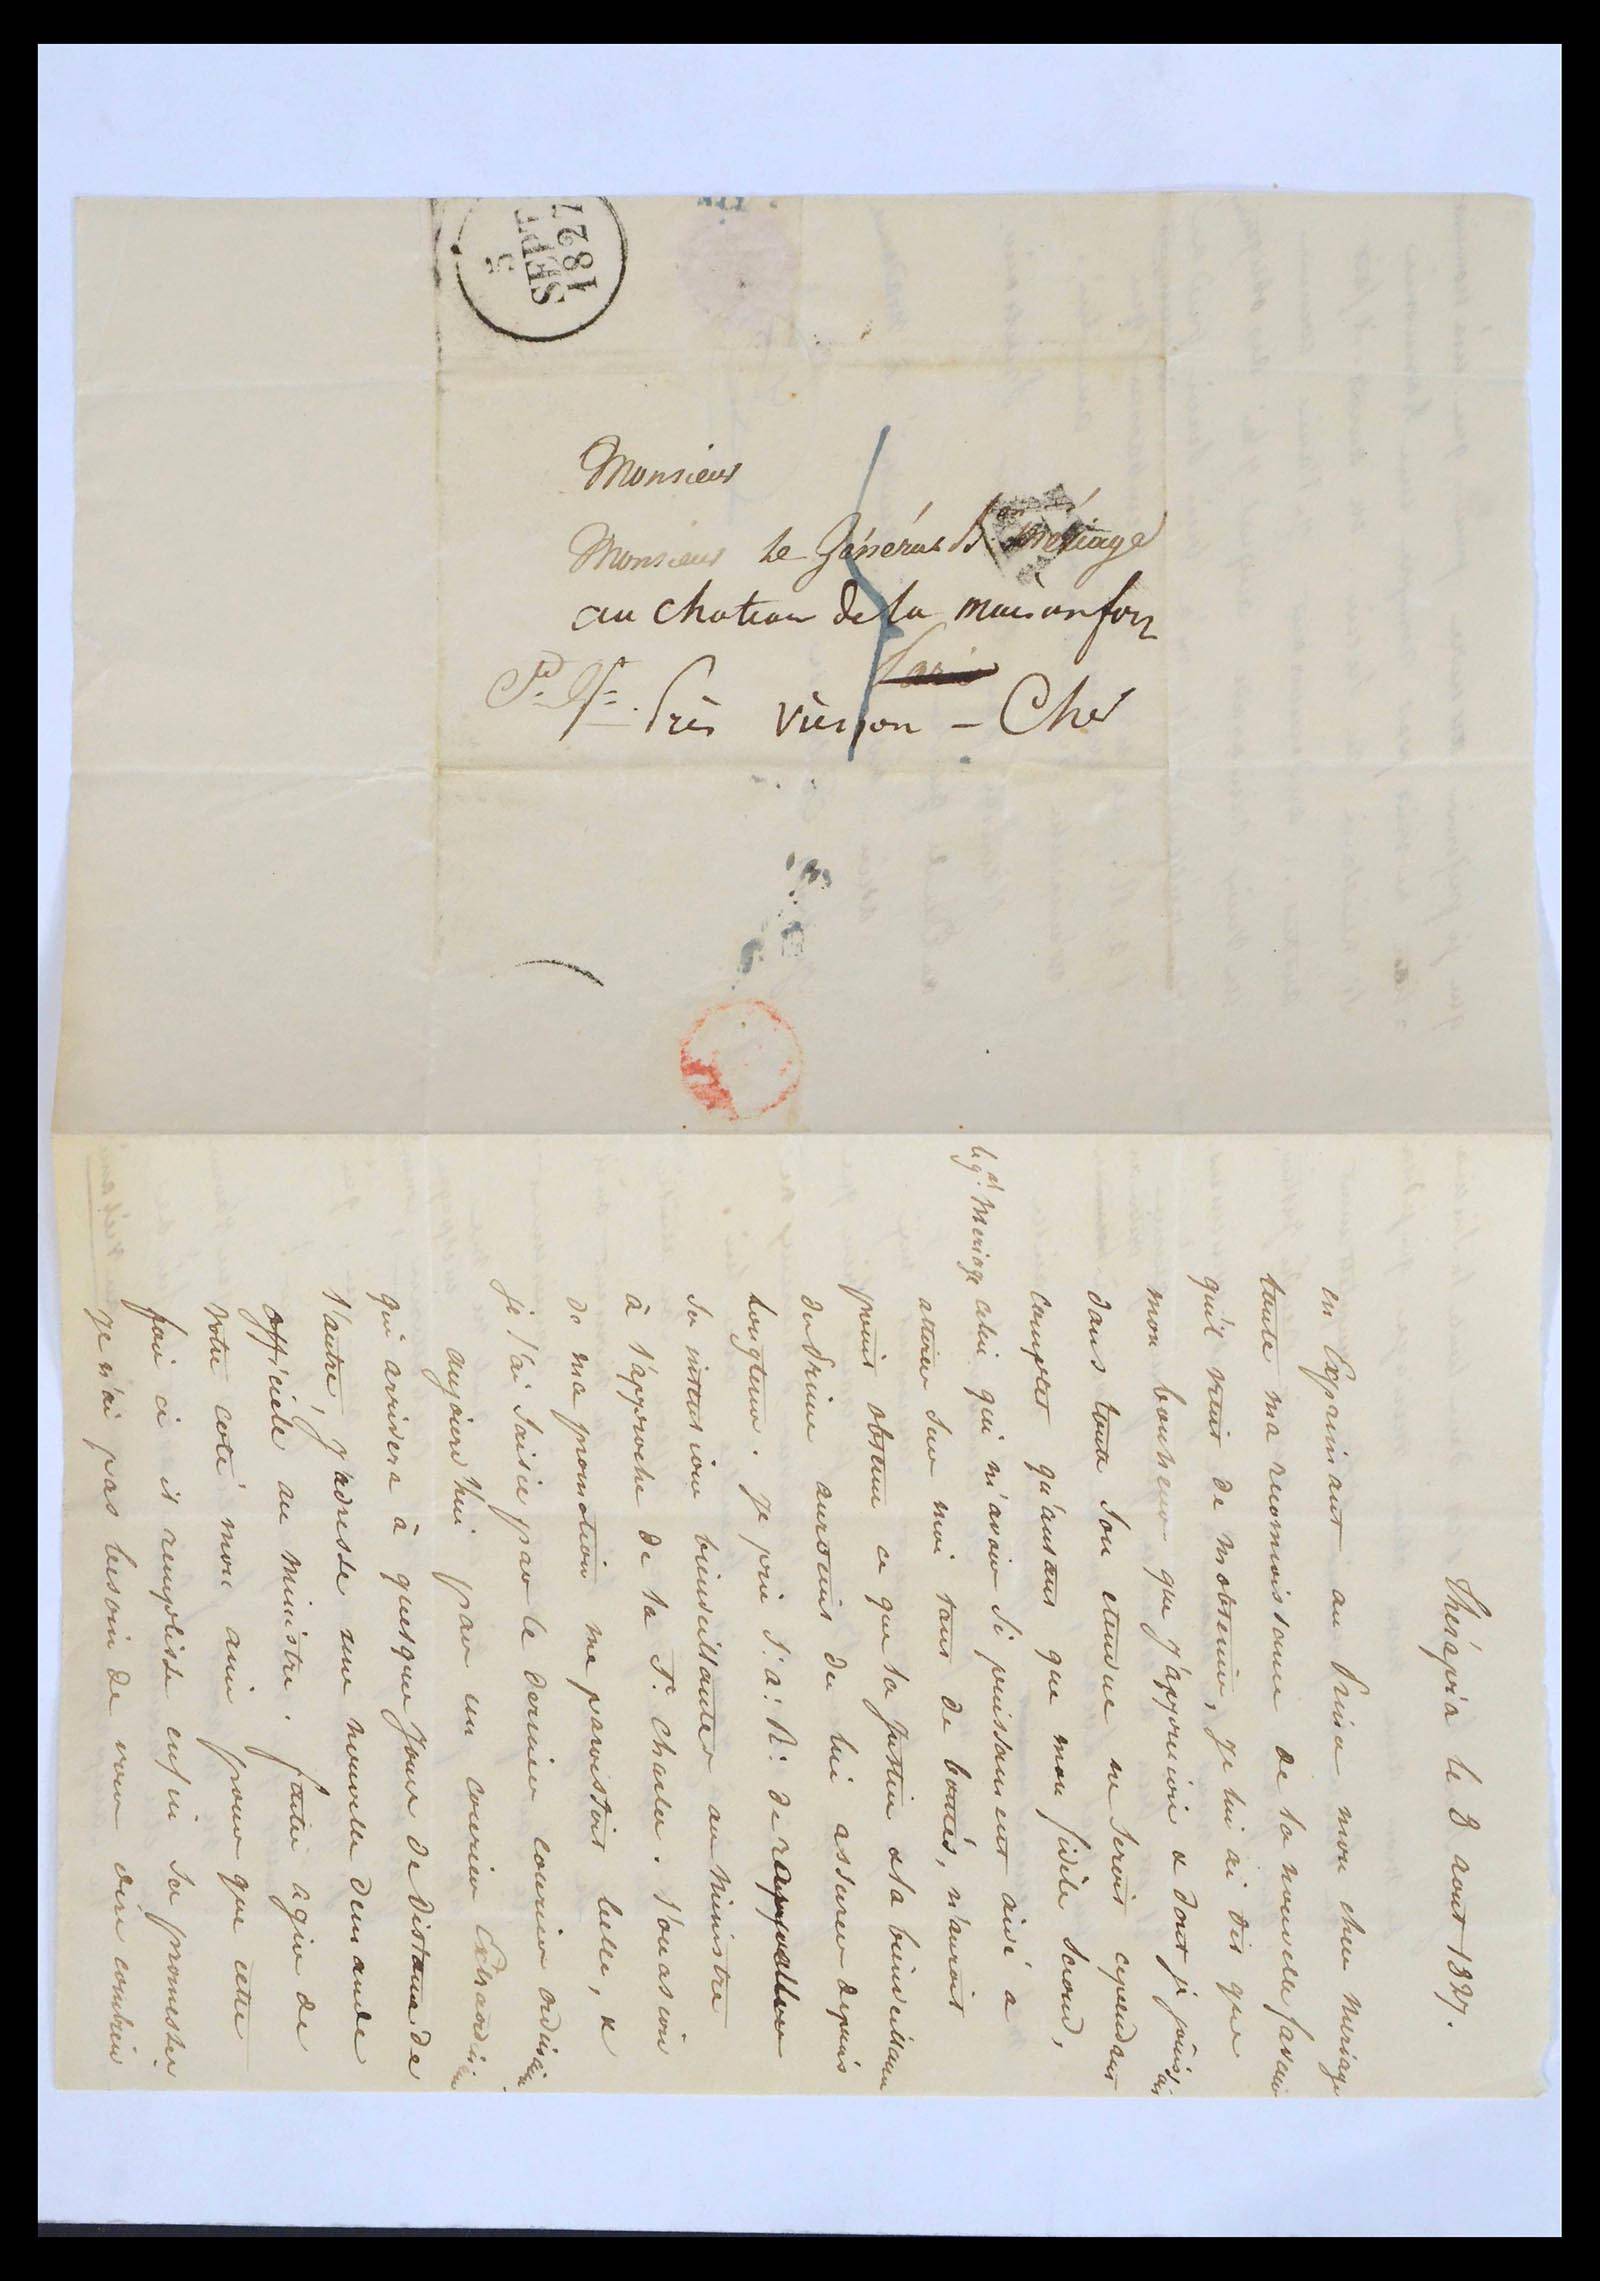 SEPT
5
1827
Monsieur
Monsieur le Général Bon Mériage
au chateau de la maisonfort
Paris
Près Vierzon - Cher
Thérapia le 3 aout 1827.
en Exprimant au Prince mon cher Meriage
toute ma reconnoissance de la nouvelle faveur
qu'il vient de m'obtenir, je lui ai dis que
mon bonheur que j'apprecie & dont je jouissais
dans toute son etendue ne seroit cependant
complet qu'autant que mon fidele second,
celui qui m'avoit si puissament aidé a
attirer sur moi tant de bontés, n'auroit
point obtenu ce que la justice & la bienveillance
du Prince auroient du lui assurer depuis
longtems. je prie S. A. R. de rappeller
ses intentions bienveillantes au Ministre
à l'approche de la St. Charles. l'occasion
de ma promotion me paroissoit belle, &
je l'ai saisie par le dernier courier ordinaire
aujourd'hui par un courier Extraordin.
qui arrivera à quelques jours de distance de
l'autre, j'adresse une nouvelle demande
officielle au ministre. faites agir de
votre coté mon ami pour que cette
fois ci il remplisse enfin ses promesses.
je n'ai pas besoin de vous dire combien
le gal. Meriage